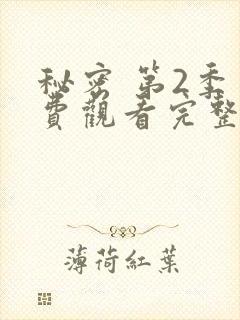 秘密 第2季
費觀看完整
薄荷紅葉